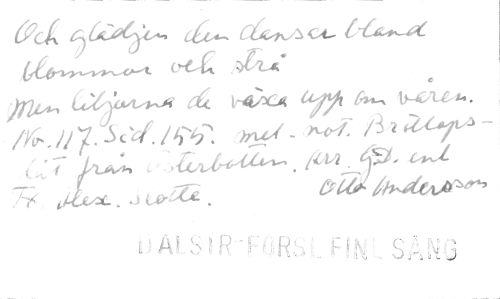 Och glädjen den dansar bland
blommor och strå
Men liljorna de växa upp om våren.
No. 117. Sid. 155. mel. not. Bröllops-
låt från Österbotten. Arr. G.D. enl
Fr. Alex. Slotte. Otto Andersson
DALSIR-FÖRSL FINL SÅNG